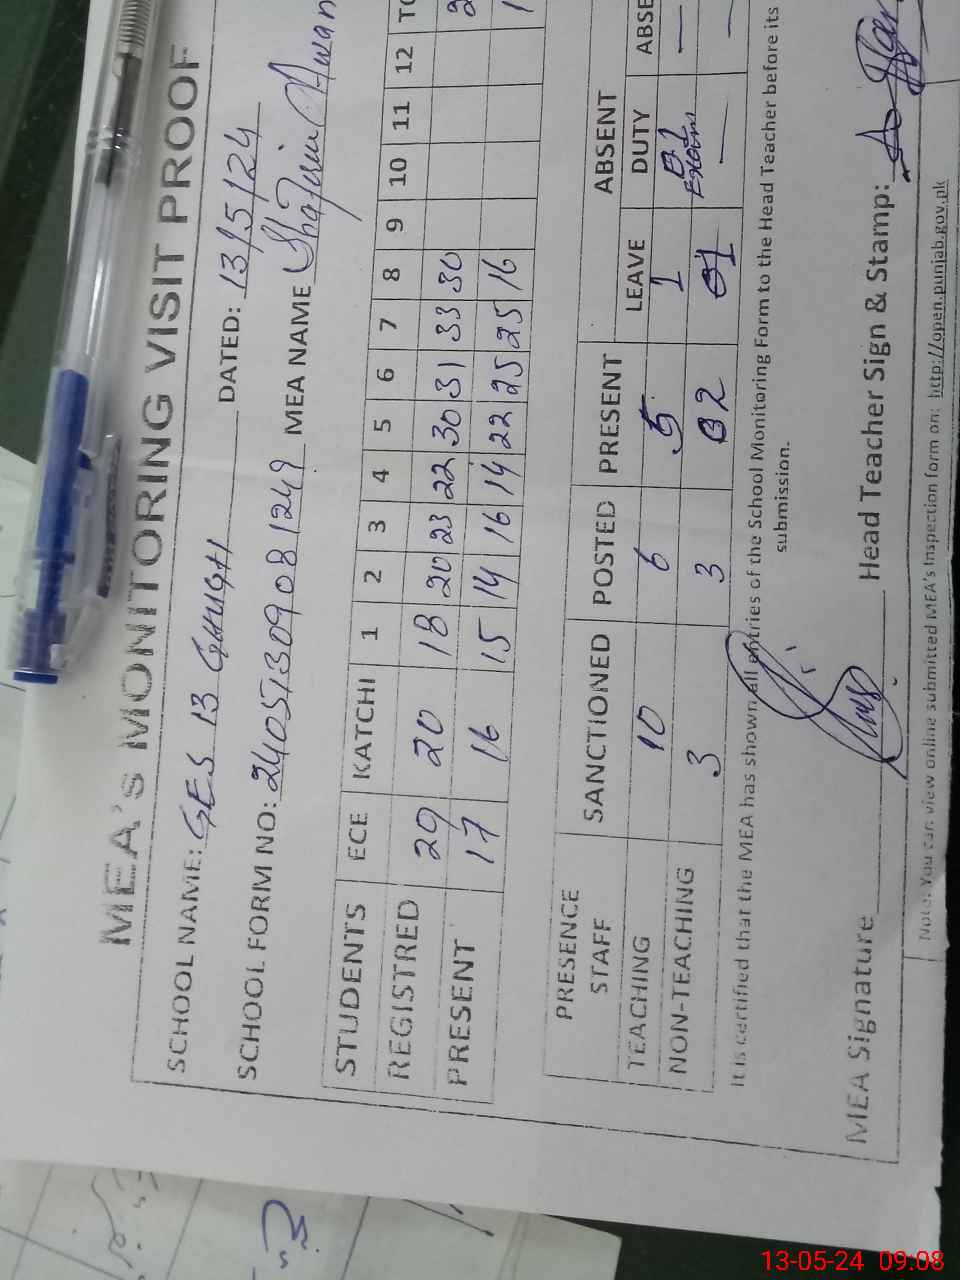 MEA's MONITORING VISIT PROOF
SCHOOL NAME: GES 13 GHUGH DATED: 13/5/24
SCHOOL FORM NO: 2405130908 1249 MEA NAME Awan
STUDENTS ECE KATCHI 1 2 3 4 5 6 7 8 9 10 11 12 TO
REGISTRED 29 20 18 20 23 22 30 31 33 30 2
PRESENT 17 16 15 14 16 14 22 25 25 16 1
PRESENCE ABSENT
STAFF SANCTIONED POSTED PRESENT LEAVE DUTY ABSE
TEACHING 10 6 5 1 Exam —
NON-TEACHING 3 3 02 01 — —
It is certified that the MEA has shown all entries of the School Monitoring Form to the Head Teacher before its
submission.
MEA Signature Head Teacher Sign & Stamp:
Note: You can view online submitted MEA's Inspection form on: http://open.punjab.gov.pk
13-05-24 09:08